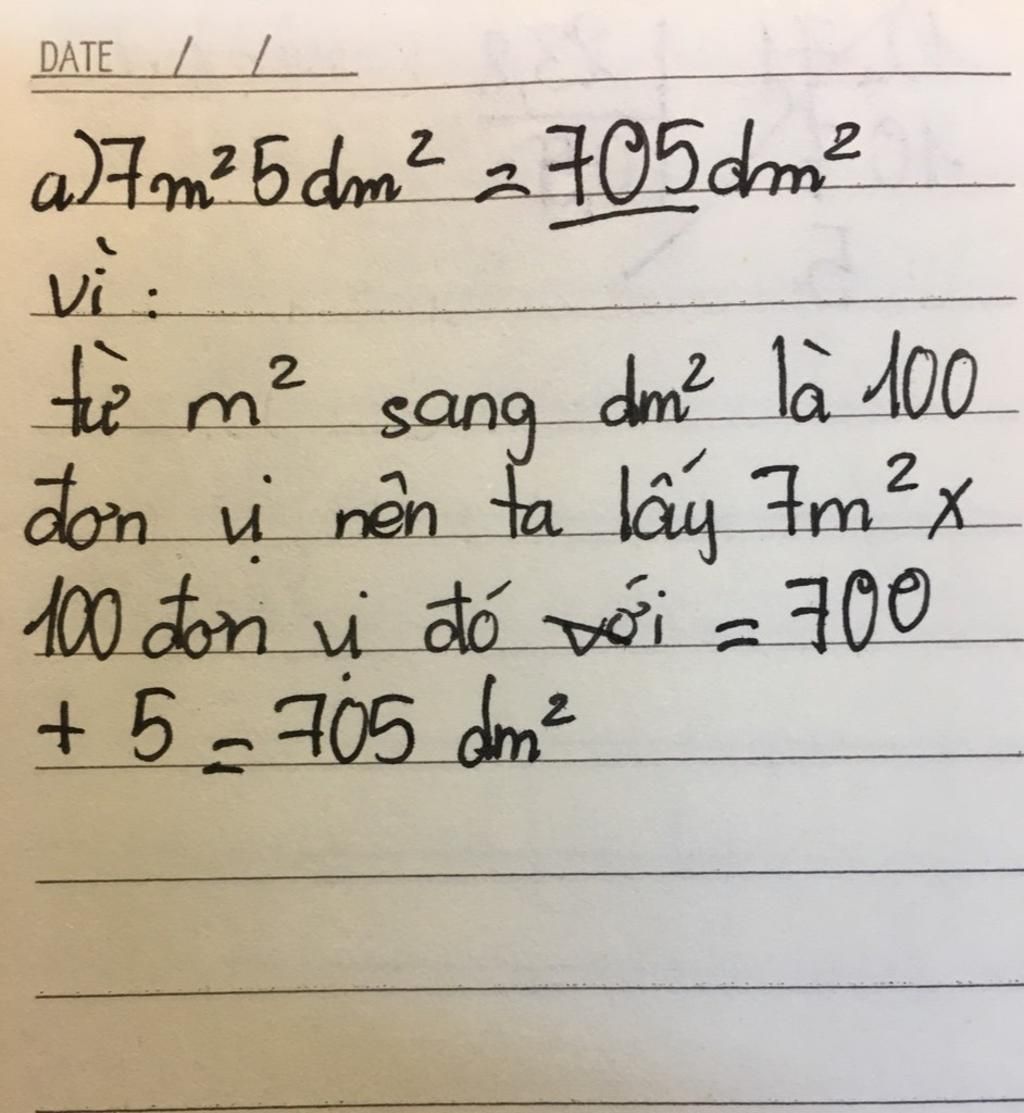 DATE / /
a) 7m² 5dm² = 705dm²
vì :
từ m² sang dm² là 100
đơn vị nên ta lấy 7m² x
100 đơn vị đó với = 700
+ 5 = 705 dm²